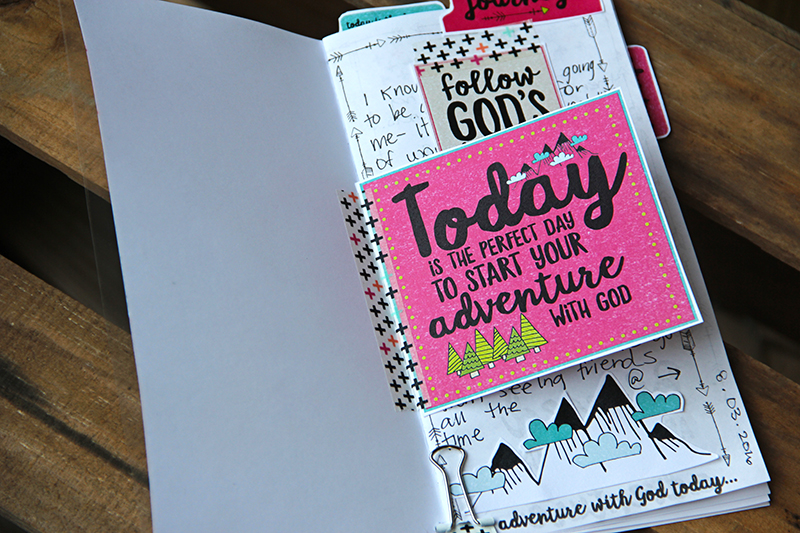 today is the
journey
follow
GOD'S
I Know going
to be or
me- it
of
Today
is THE PERFECT DAY
TO START YOUR
adventure
WiTH GOD
seeing friends
all the @ →
time
8.03.2016
adventure with God today...